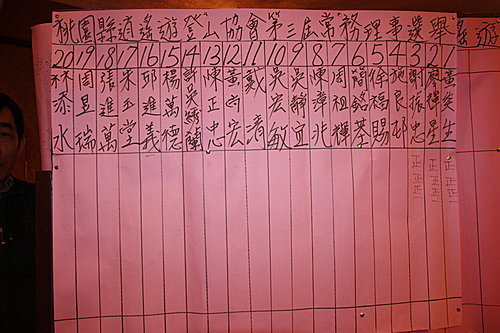 桃園縣逍遙遊登山協會第三屆常務理事選舉
遙遊
20 19 18 17 16 15 14 13 12 11 10 9 8 7 6 5 4 3 2 1
林添水
周昱瑞
張進萬
朱玉堂
邱進義
楊萬德
陳正忠
黃宏
戴清
吳宏敏
吳靜宜
陳瑋兆
周祖輝
簡銘基
徐福賜
施良
謝振忠
星
黃奕生
正正正
正正正
正正正